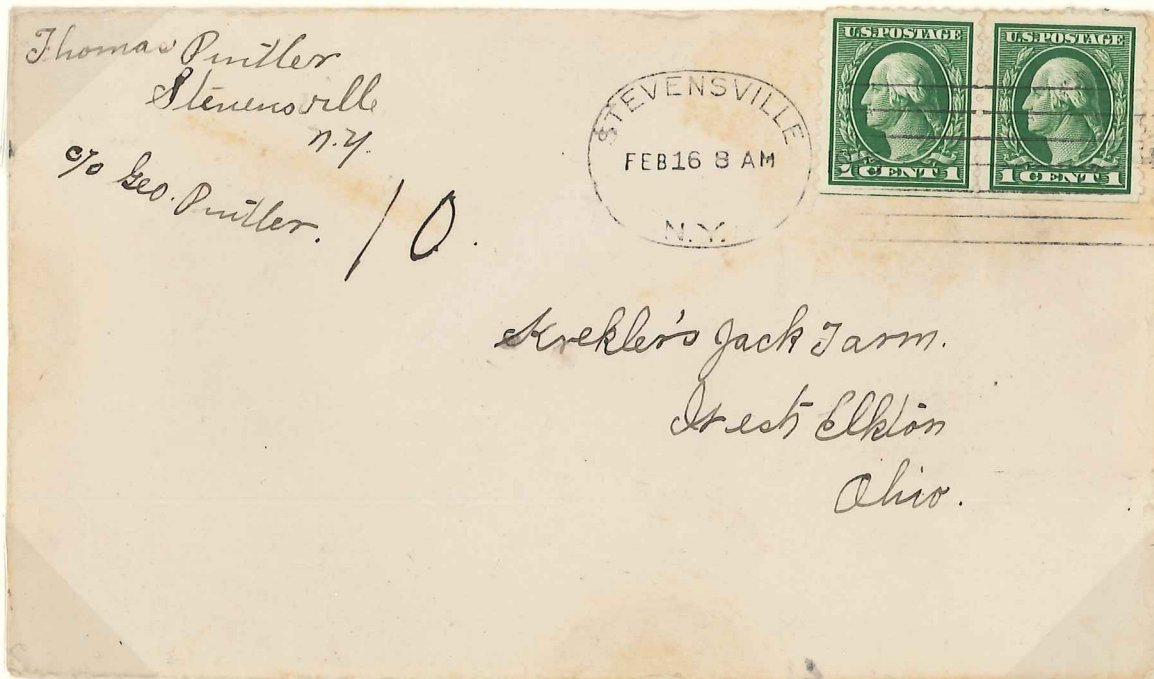 Thomas Pintler
Stevensville
N.Y.
c/o Geo. Pintler.
10.
STEVENSVILLE
FEB 16 8 AM
N.Y.
U.S. POSTAGE
1 CENT 1
U.S. POSTAGE
1 CENT 1
Krekler's Jack Farm.
West Elkton
Ohio.